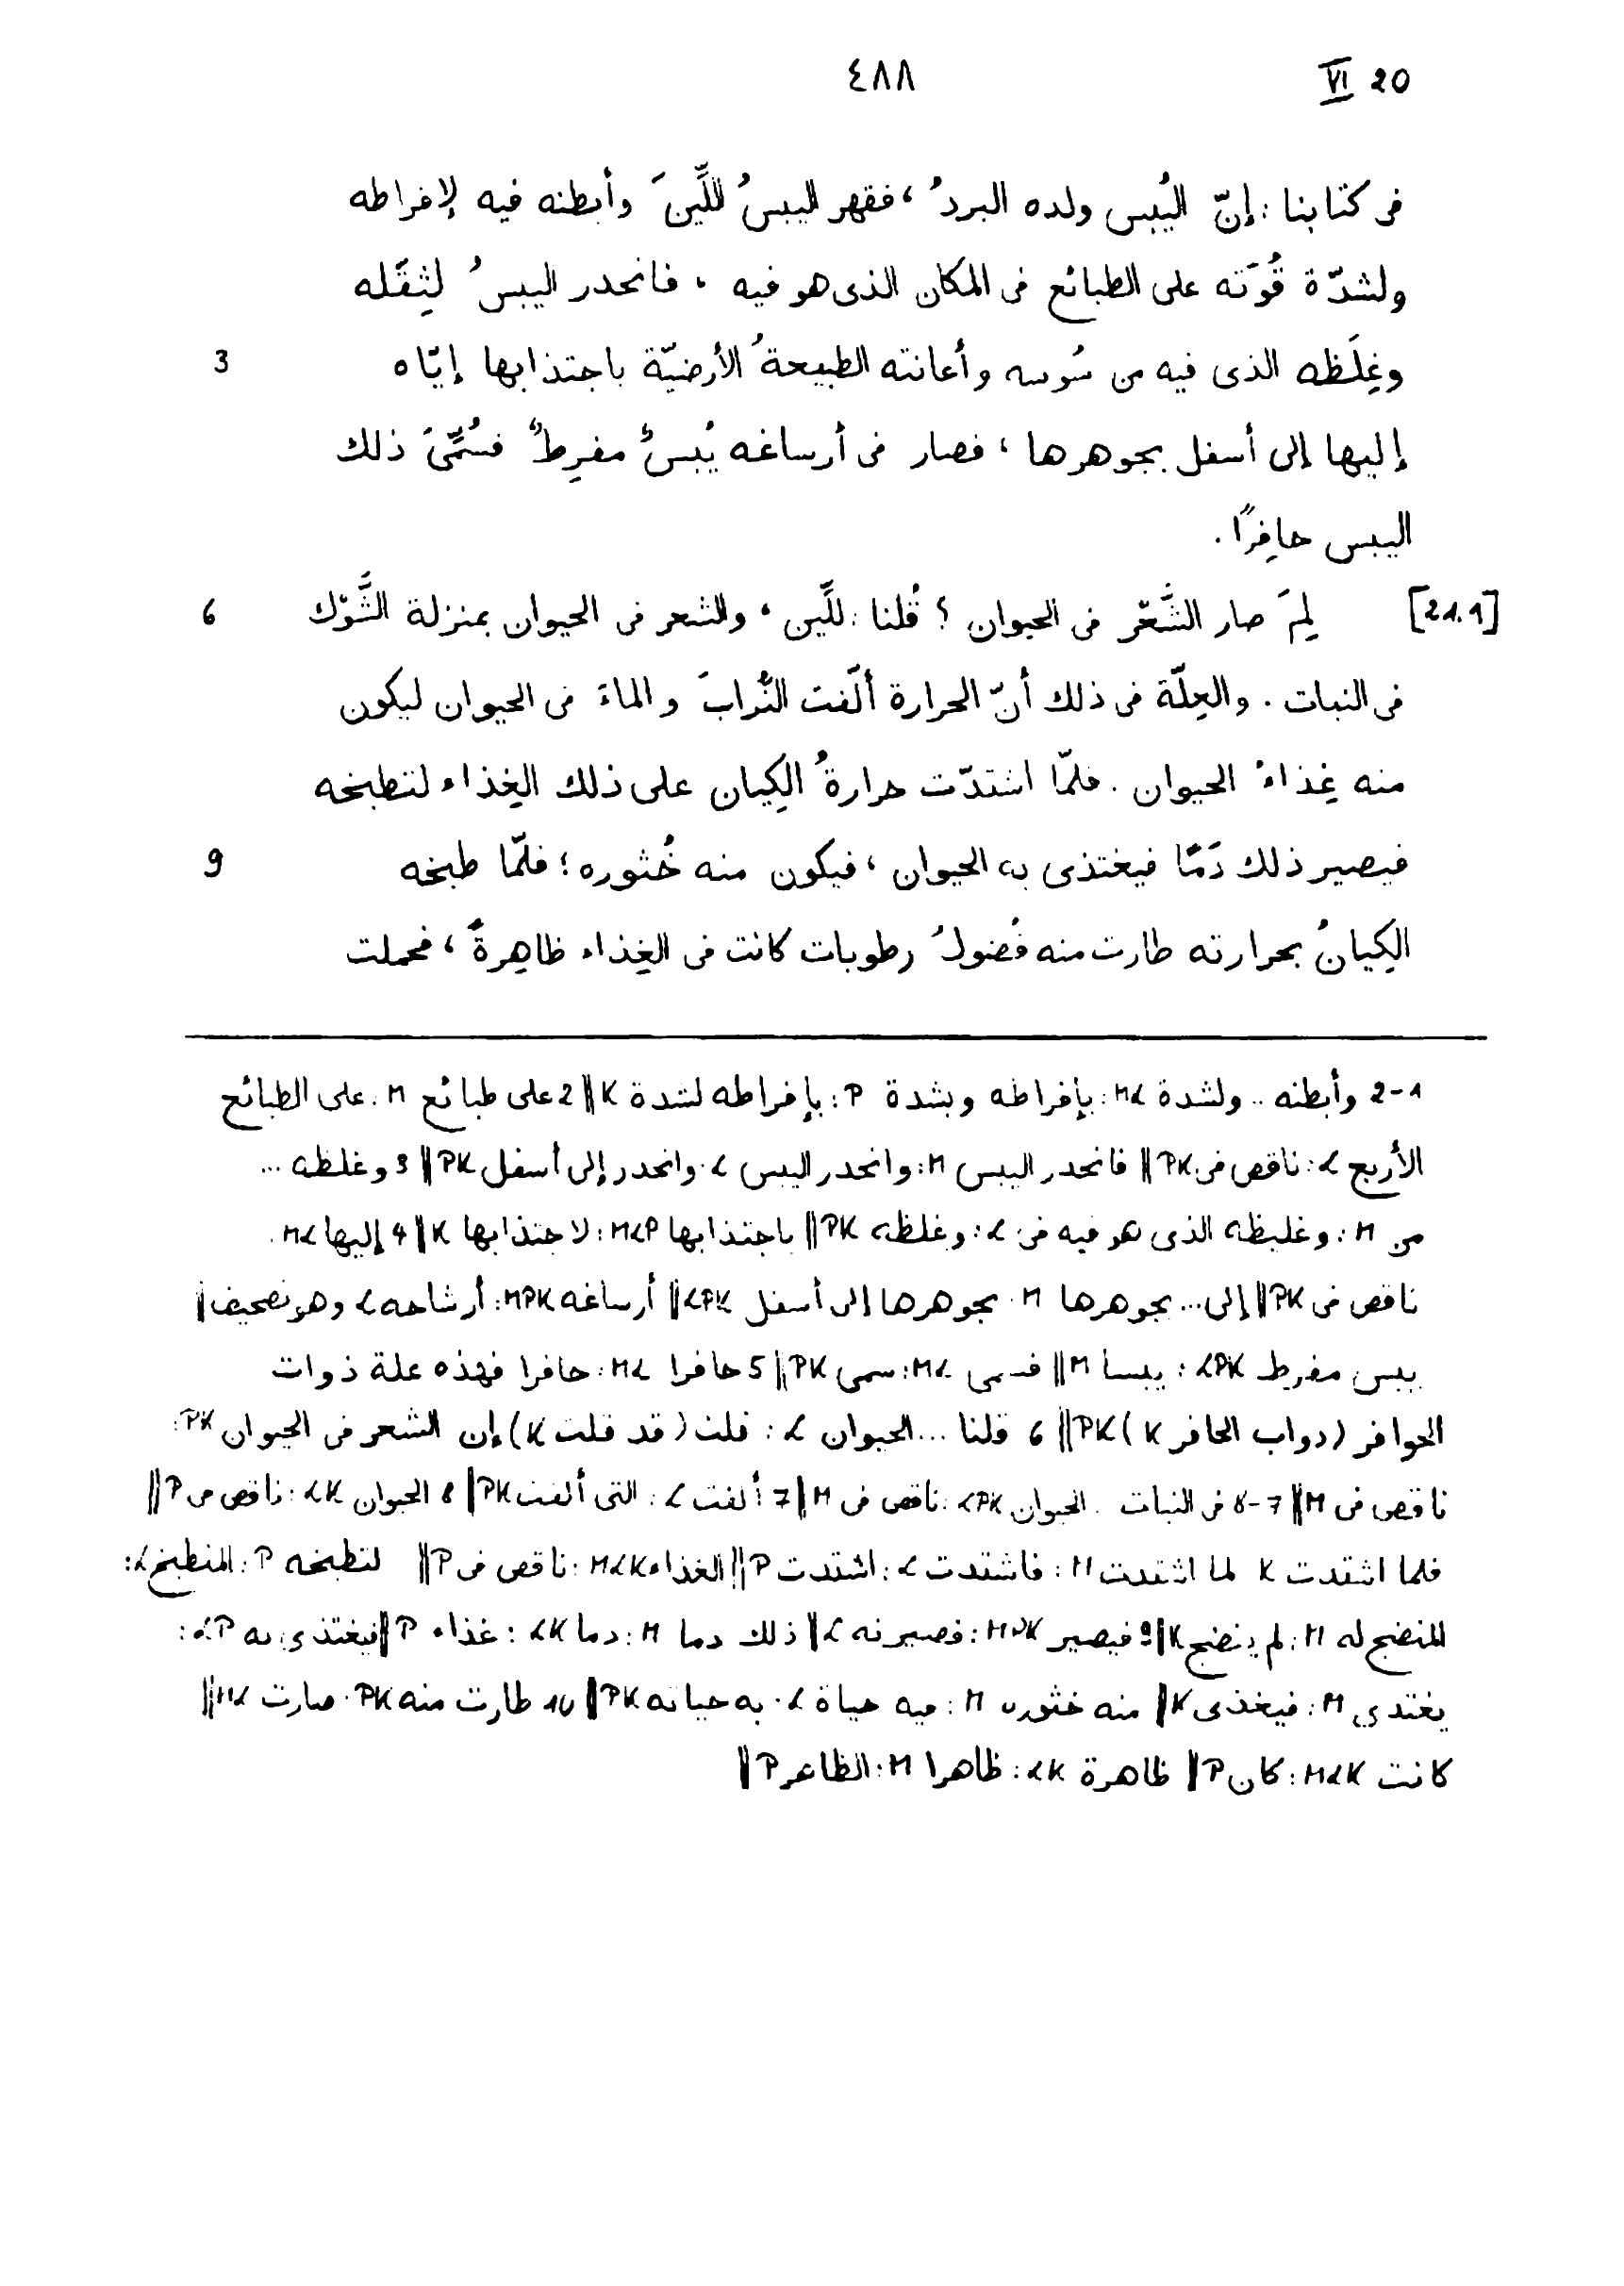 VI 20 ٤٨٨
فى كتابنا : إنّ اليُبس ولده البردُ ، فقهر اليبسُ اللِّينَ وأبطنه فيه لإفراطه
ولشدّة قُوّته على الطبائع فى المكان الذى هو فيه ، فانحدر اليبسُ لثِقَله
3 وغِلَظه الذى فيه من سُوسه وأعانته الطبيعةُ الأرضيّة باجتذابها إيّاه
إليها إلى أسفل بجوهرها ، فصار فى أرساغه يُبسٌ مفرِطٌ فسُمِّىَ ذلك
اليبس حافِرًا .
[21.1] لِمَ صار الشَّعْر فى الحيوان ؟ قُلنا : للِّين ، والشعر فى الحيوان بمنزلة الشَّوْك 6
فى النبات . والعِلّة فى ذلك أنّ الحرارة ألّفت التُّرابَ والماءَ فى الحيوان ليكون
منه غِذاءُ الحيوان . فلمّا اشتدّت حرارةُ الكِيان على ذلك الغِذاء لتطبخه
9 فيصير ذلك دَمًا فيغتذى به الحيوان ، فيكون منه خُثوره ؛ فلمّا طبخه
الكِيانُ بحرارته طارت منه فُضولُ رطوبات كانت فى الغِذاء ظاهِرةً ، فحملت
1-2 وأبطنه .. ولشدة ML : بإفراطه وبشدة P : بإفراطه لشدة K ‖ 2 على طبائع M : على الطبائع
الأربع L : ناقص فى PK ‖ فانحدر اليبس M : وانحدر اليبس L : وانحدر إلى أسفل PK ‖ 3 وغلظه ...
من M : وغليظه الذى هو فيه فى L : وغلظه PK ‖ باجتذابها MLP : لاجتذابها K ‖ 4 إليها ML :
ناقص فى PK ‖ إلى ... بجوهرها M : بجوهرها إلى أسفل LPK ‖ أرساغه MPK : أرشاحه L وهو تصحيف ‖
يبس مفرط LPK : يبسا M ‖ فسمى ML : سمى PK ‖ 5 حافرا ML : حافرا فهذه علة ذوات
الحوافر (دواب الحافر K) PK ‖ 6 قلنا ... الحيوان L : قلت (قد قلت K) إن الشعر فى الحيوان PK :
ناقص فى M ‖ 7-8 فى النبات .. الحيوان LPK : ناقص فى M ‖ 7 ألفت L : التى ألفت PK ‖ 8 الحيوان LK : ناقص فى P ‖
فلما اشتدت K لما اشتدت M : فاشتدت L : اشتدت P ‖ الغذاء MLK : ناقص فى P ‖ لتطبخه P : المنطبخ L :
المنضج له M : لم ينضج K ‖ 9 فيصير MPK : فصيرته L ‖ ذلك دما M : دما LK : غذاء P ‖ فيغتذى به LP :
يغتدى M : فيغذى K ‖ منه خثوره M : فيه حياة L : به حياته PK ‖ 10 طارت منه PK : صارت ML ‖
كانت MLK : كان P ‖ ظاهرة LK : ظاهرا M : الظاهر P ‖